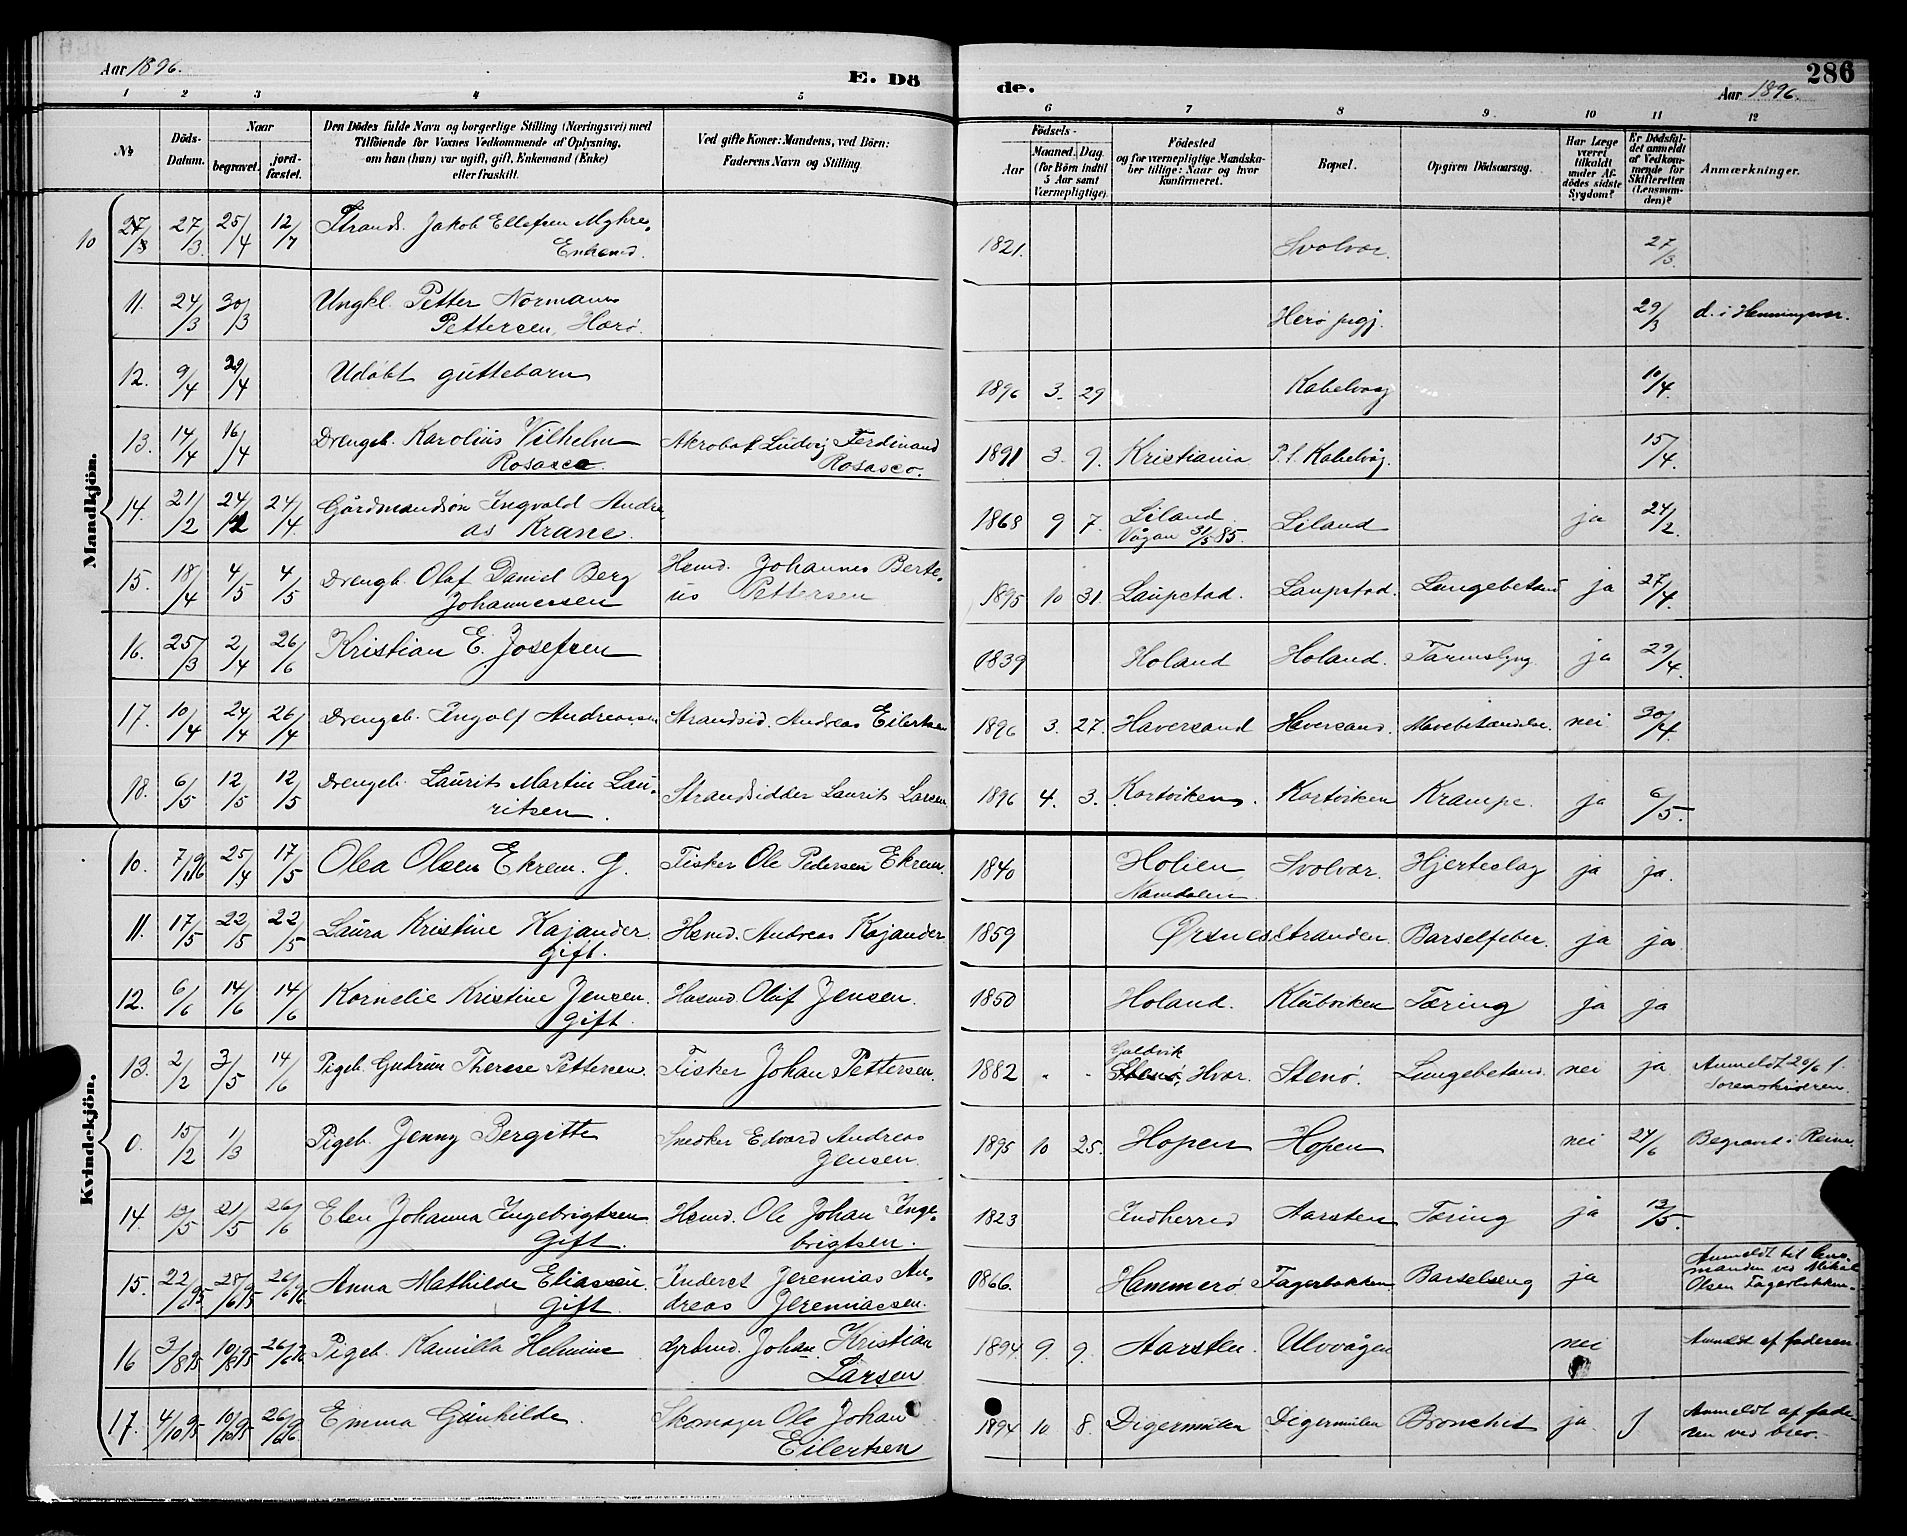 Aar 1896.
E. Dö
de.
286
Aar 1896.
1 2 3 4 5 6 7 8 9 10 11 12
№
Döds-Datum.
Naar
begravet.
jord-fæstet.
Den Dödes fulde Navn og borgerlige Stilling (Næringsvei) med
Tilföiende for Voxnes Vedkommende af Oplysning,
om han (hun) var ugift, gift, Enkemand (Enke)
eller fraskilt.
Ved gifte Koner: Mandens, ved Börn:
Faderens Navn og Stilling.
Födsels-
Aar
Maaned. Dag.
(for Börn indtil
5 Aar samt
Værnepligtige).
Födested
og for værnepligtige Mandska-
ber tillige: Naar og hvor
konfirmeret.
Bopæl.
Opgiven Dödsaarsag.
Har Læge
været
tilkaldt
under Af-
dödes sidste
Sygdom?
Er Dödsfal-
det anmeldt
af Vedkom-
mende for
Skifteretten
(Lensman-
den)?
Anmærkninger.
Mandkjön.
10 27/3 27/3 25/4 12/7 Strands. Jakob Ellefsen Myhre, 1821. Svolvær. 27/3.
Enkemd.
11. 24/3 30/3 Ungkl. Petter Normann Herø prgj. 29/3 d. i Henningsvær.
Pettersen, Herø.
12. 9/4 29/4 Udøbt guttebarn 1896 3. 29 Kabelvaag 10/4.
13. 14/4 16/4 Drengeb. Karolius Vilhelm Akrobat Ludvig Ferdinand 1891 3. 9. Kristiania P.t. Kabelvåg. 15/4.
Rosasco. Rosasco.
14. 21/2 24/2 24/4 Gårdmandsøn Ingvald Andre- 1868 9 7. Liland Liland ja 24/2.
as Krane. Vågan 31/5 85.
15. 18/4 4/5 4/5 Drengb. Olaf Daniel Berg Hemd. Johannes Berte- 1895 10 31. Laupstad. Laupstad. Lungebetænd ja 27/4.
Johannessen us Pettersen
16. 25/3 2/4 26/6 Kristian E. Josefsen 1839 Holand Holand. Tarmslyng. ja 29/4.
17. 10/4 24/4 26/4 Drengeb. Ingolf Andreassen Strandsid. Andreas Eilertsen 1896 3. 27. Haversand Haversand. Mavebetændelse. nei 30/4.
18. 6/5 12/5 12/5 Drengeb. Laurits Martin Lau- Strandsidder Laurits Larsen 1896 4. 3. Kortviken. Kortviken Krampe. ja 6/5.
ritsen.
Kvindekjön.
10. 25/4 17/5 Olea Olsen Ekrem. G. Fisker Ole Pedersen Ekrem. 1840 Holien Svolvær. Hjerteslag ja ja.
Namdalen.
11. 17/5 22/5 22/5 Laura Kristine Kajander. Hemd. Andreas Kajander 1859 Ørsnesstranden. Barselfeber. ja ja
Gift.
12. 6/6 14/6 14/6 Kornelie Kristine Jensen. Husmd. Oluf Jensen. 1850 Holand. Kløbviken Tæring ja ja
Gift.
13. 2/2 3/5 14/6 Pigeb. Gudrun Therese Pettersen. Fisker Johan Pettersen. 1882 " " Guldvik Stenø. Lungebetænd. nei ja Anmeldt 20/6 f.
Stenø, Hvar.
0. 15/2 1/3 Pigeb. Jenny Bergitte Snedker Edvard Andreas 1895 10 25. Hopen Hopen nei 24/6 Begravet i Reine.
Jensen.
14. 21/5 26/6 Elen Johanna Ingebrigtsen Hemd. Ole Johan Inge- 1823 Indherred Aarsten Tæring ja 12/5.
Gift. brigtsen.
15. 22/6 95 28/6 95 26/6 96 Anna Mathilde Eliassen Inderst Jeremias An- 1866. Hammerø Fagerbakken. Barselseng ja Anmeldt til lens-
Gift. dreas Jeremiassen. manden ved Mikal
Olsen Fagerbakken.
16 3/8 95 10/8 95 26/6 96 Pigeb. Kamilla Helmine Gårbmd. Johan Kristian 1894 9. 9. Aarsten. Ulvvågen nei Anmdt af faderen
Larsen
17. 4/10 95 10/10 95 26/6 96 Emma Gunhilde. Skomager Ole Johan 1894 10 8. Digermulen Digermulen Bronchit ja J Anmeldt af fade-
Eilertsen ren ved brev.